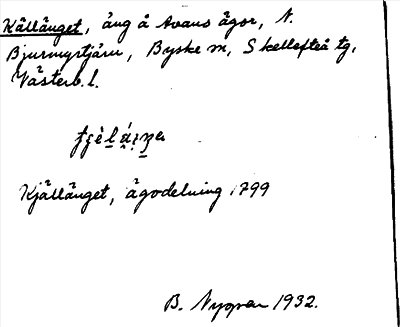 Källänget, äng å Avans ägor, N.
Bjurmyrtjärn, Byske sn, Skellefteå tg,
Västerb. l.
Kjällänget, ägodelning 1799
B. Nygren 1932.